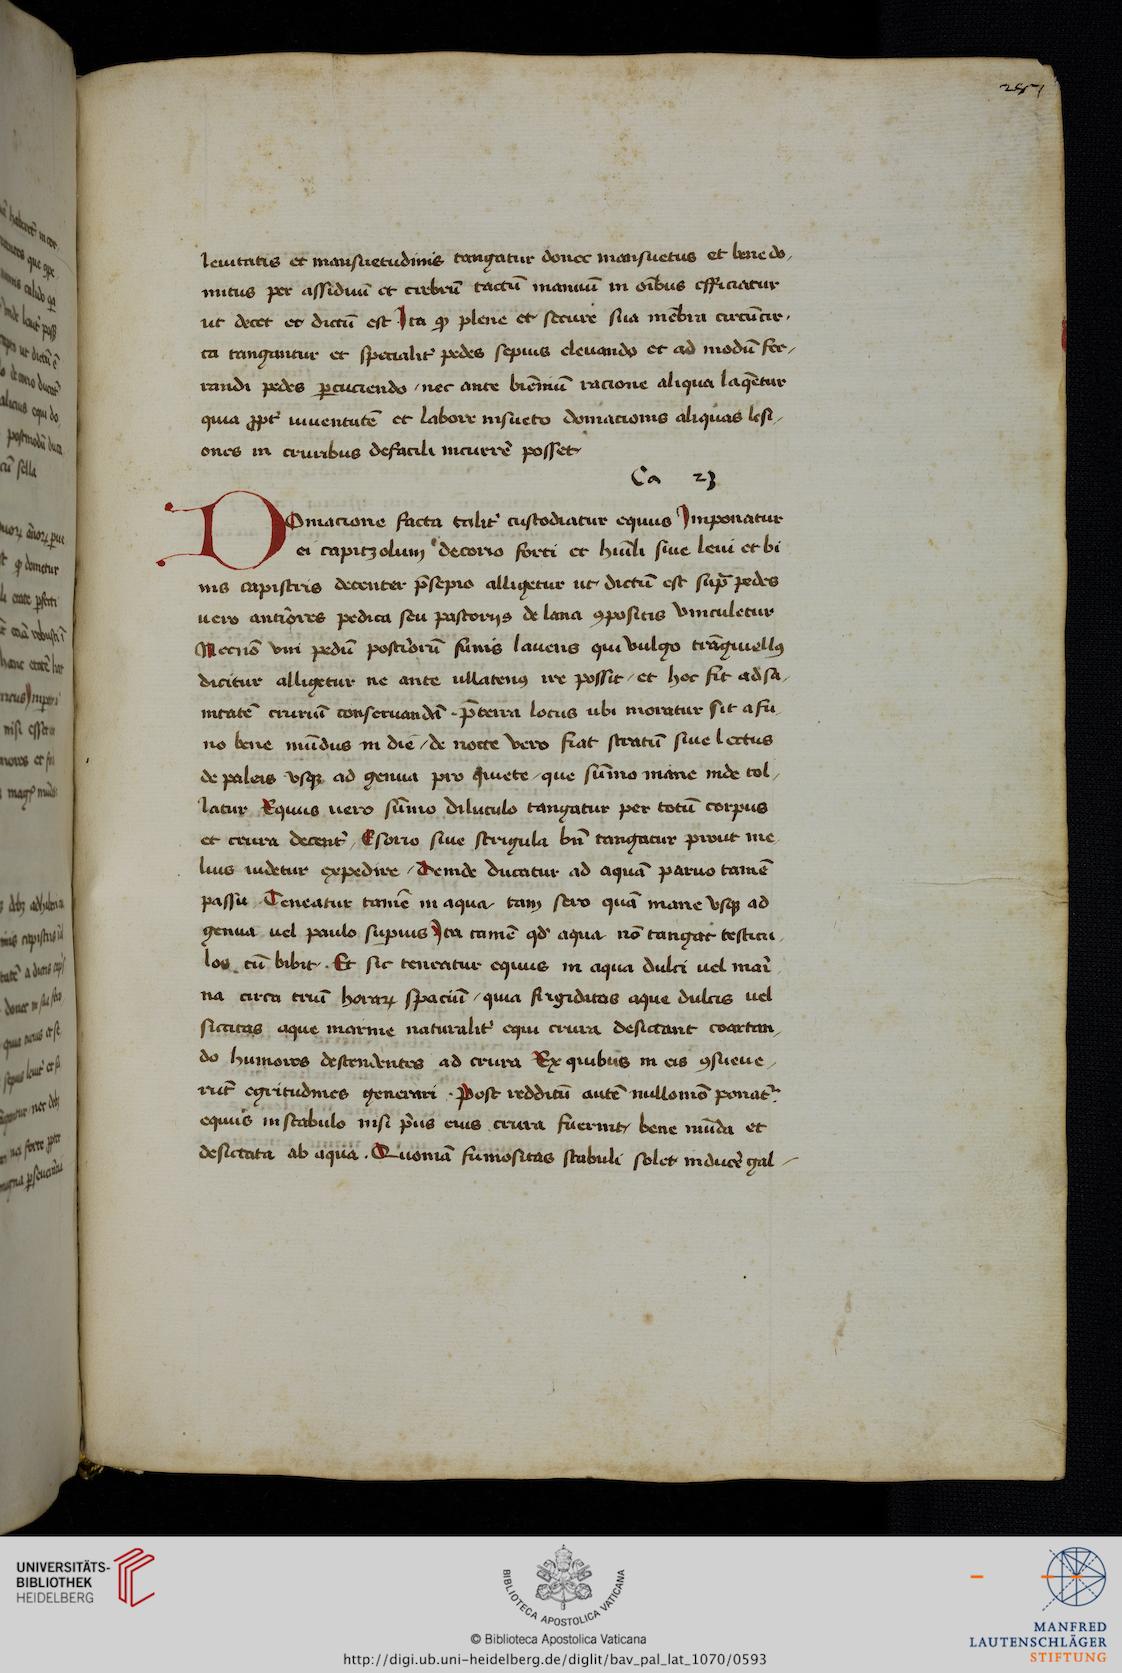 287
levitatis et mansuetudinis tangatur donec mansuetus et bene do,
mitus per assiduū et crebrū tactū manuū in oībus efficiatur
ut decet et dictū est Ita ꝙ plene et secure sua mēbra circūcir,
ca tangantur et specialit̄ pedes sepius elevando et ad modū fer,
randi pedes ꝑcuciendo / nec ante biēniū racione aliqua laq̄etur
quia ꝓpt̄ iuventutē et labore insueto domacionis aliquas lesi,
ones in cruribus defacili incurrē posset
Ca 23
DOmacione facta talit̄ custodiatur equus Imponatur
ei capitzolum decorio forti et humīli sive levi et bi
nis capistris decenter p̄sepio alligetur ut dictū est sup̄ pedes
vero antīores pedica seu pastoriis de lana ꝯpositis vinculetur
Necnō uni pedū postīorū funis lavens qui vulgo trāquiellꝰ
dicitur alligetur ne ante ullatenꝰ ire possit / et hoc fit ad sa,
nitatē cruriū conservandā . P̄terea locus ubi moratur sit a fi,
no bene mūdus in die / de nocte vero fiat stratū sive lectus
de paleis usqꝫ ad genua pro quiete / que sūmo mane inde tol,
latur Equus vero sūmo diluculo tangatur per totū corpus
et crura decent̄ , Esorio sive strigula bn̄ tangatur prout me
lius videtur expedire / Deinde ducatur ad aquā parvo tamē
passu Teneatur tamē in aqua tam sero quā mane usqꝫ ad
genua vel paulo supius Ita tamē qd̄ aqua nō tangat testicu,
los cū bibit . Et sic teneatur equus in aqua dulci vel mari
na circa triū horaꝝ spaciū / quia frigiditas aque dulcis vel
siccitas aque marine naturalit̄ equi crura desiccant coartan,
do humores descendentes ad crura Ex quibus in eis ꝯsueve,
rūt egritudines generari . Post redditū autē nullomō ponat̄
equus in stabulo nisi p̄us eius crura fuerint bene mūda et
desiccata ab aqua . Quoniā fumositas stabuli solet inducē gal
UNIVERSITÄTS-
BIBLIOTHEK
HEIDELBERG
BIBLIOTECA APOSTOLICA VATICANA
© Biblioteca Apostolica Vaticana
http://digi.ub.uni-heidelberg.de/diglit/bav_pal_lat_1070/0593
MANFRED
LAUTENSCHLÄGER
STIFTUNG